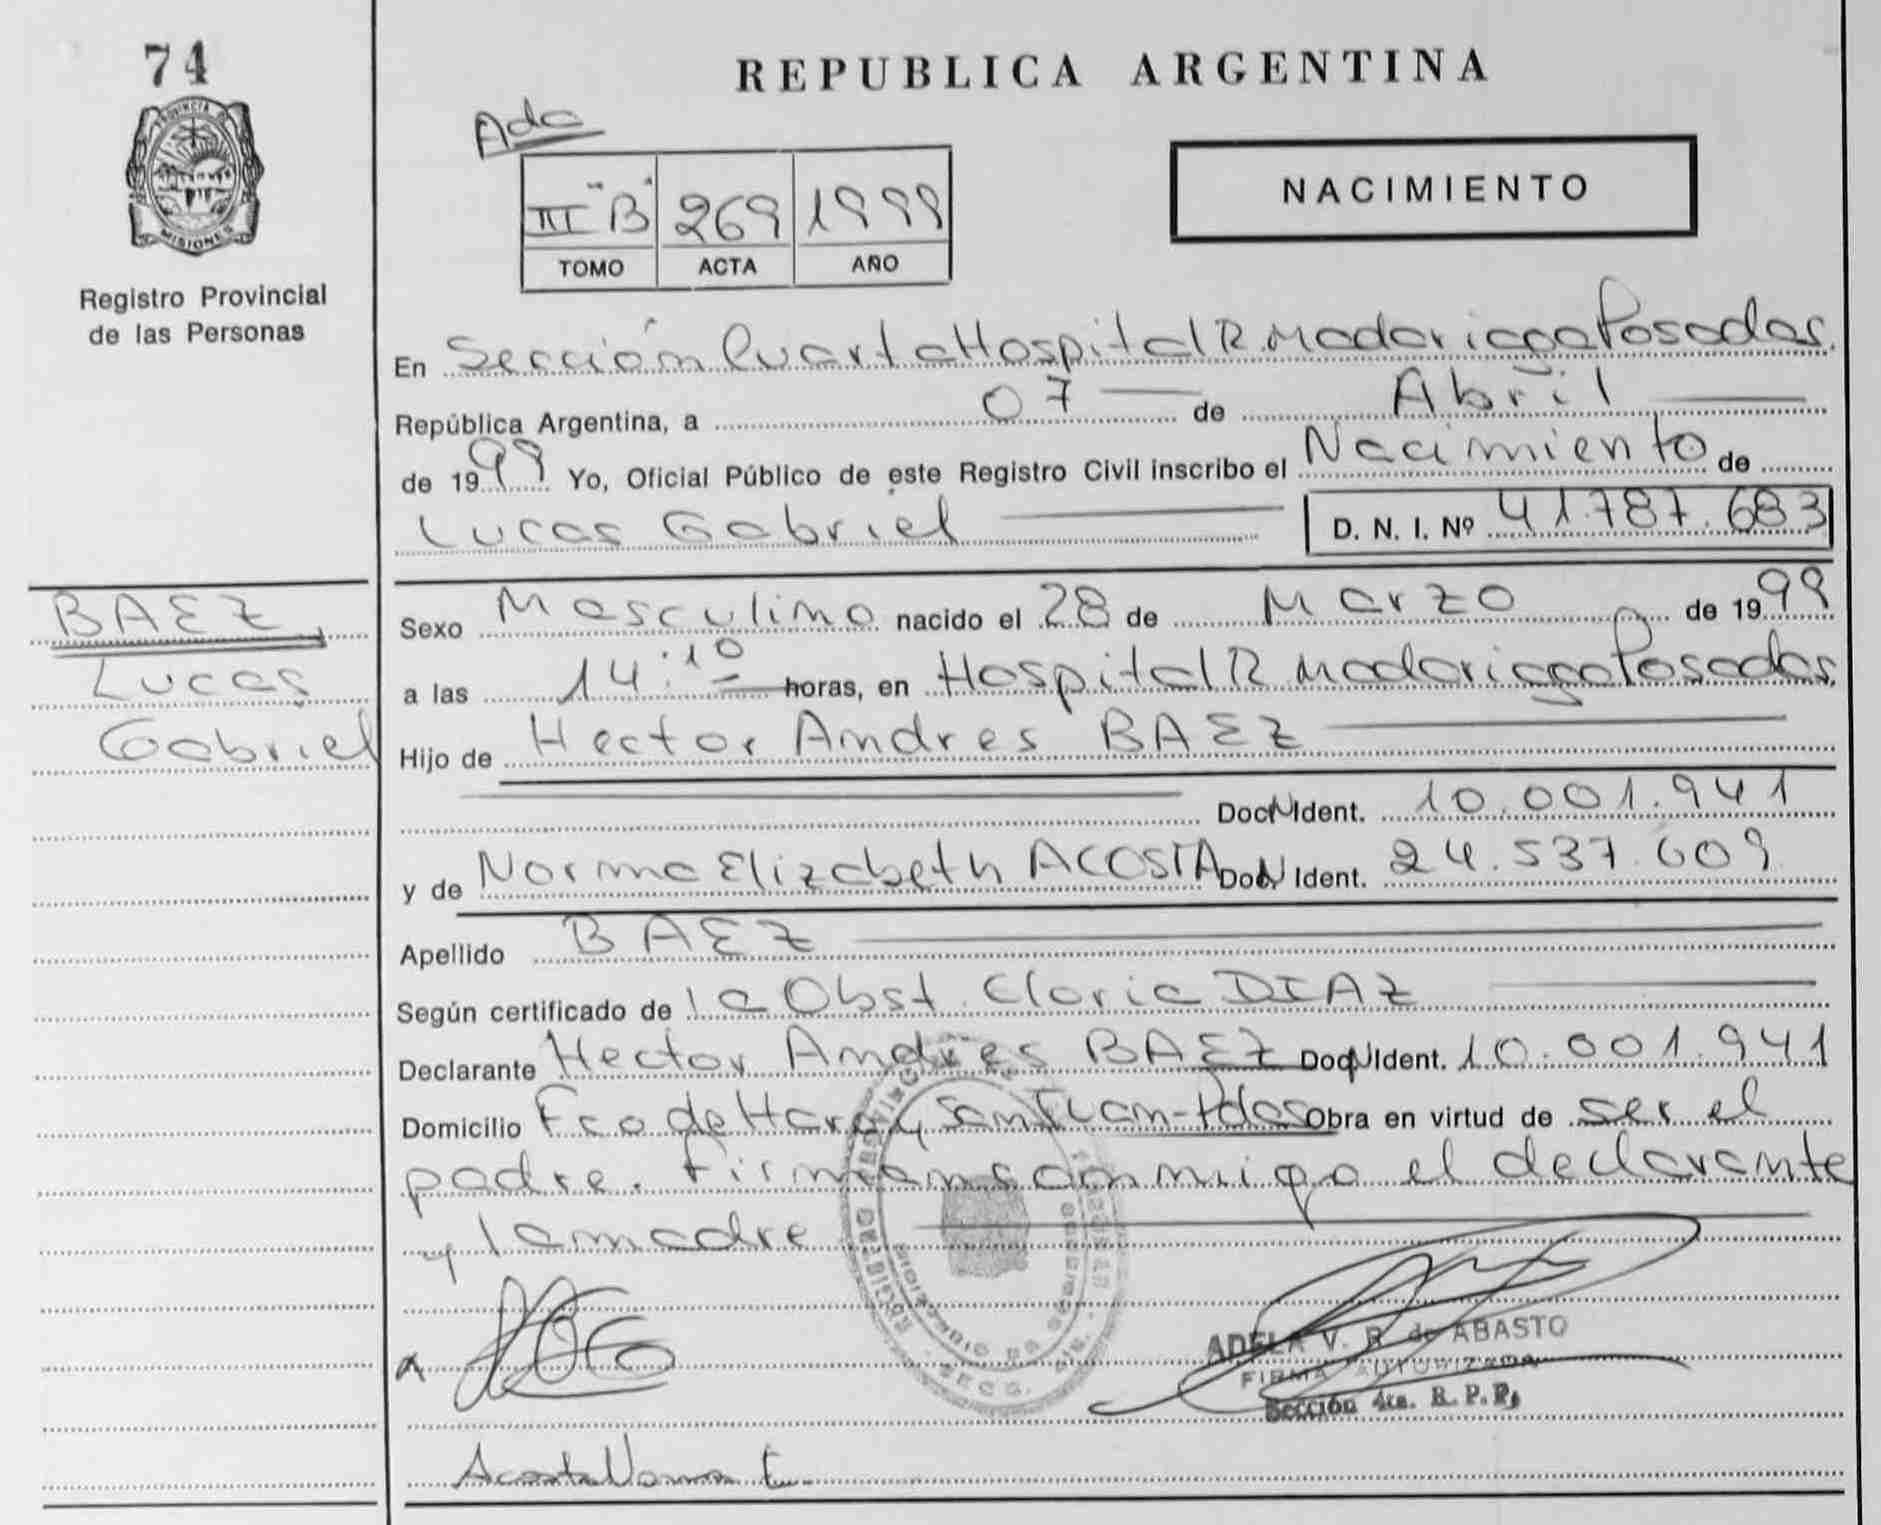 74
PROVINCIA DE
MISIONES
Registro Provincial
de las Personas
REPUBLICA ARGENTINA
Ada
III "B" 269 1999
TOMO ACTA AÑO
NACIMIENTO
En Sección Cuarta Hospital R. Madariaga Posadas.
República Argentina, a 07 de Abril
de 1999 Yo, Oficial Público de este Registro Civil inscribo el Nacimiento de
Lucas Gabriel D. N. I. Nº 41.787.683
BAEZ,
Lucas
Gabriel
Sexo Masculino nacido el 28 de Marzo de 1999
a las 14:10 horas, en Hospital R Madariaga Posadas.
Hijo de Hector Andres BAEZ
Doc N Ident. 10.001.941
y de Norma Elizabeth ACOSTA Doc N Ident. 24.537.609
Apellido BAEZ
Según certificado de la Obst. Gloria DIAZ
Declarante Hector Andres BAEZ Doc N Ident. 10.001.941
Domicilio Fco de Haro y San Juan-Pdas Obra en virtud de ser el
padre. Firman conmigo el declarante
y la madre
ADELA V. R. de ABASTO
FIRMA AUTORIZADA
Sección 4ta. R. P. P.
Acosta Norma E.